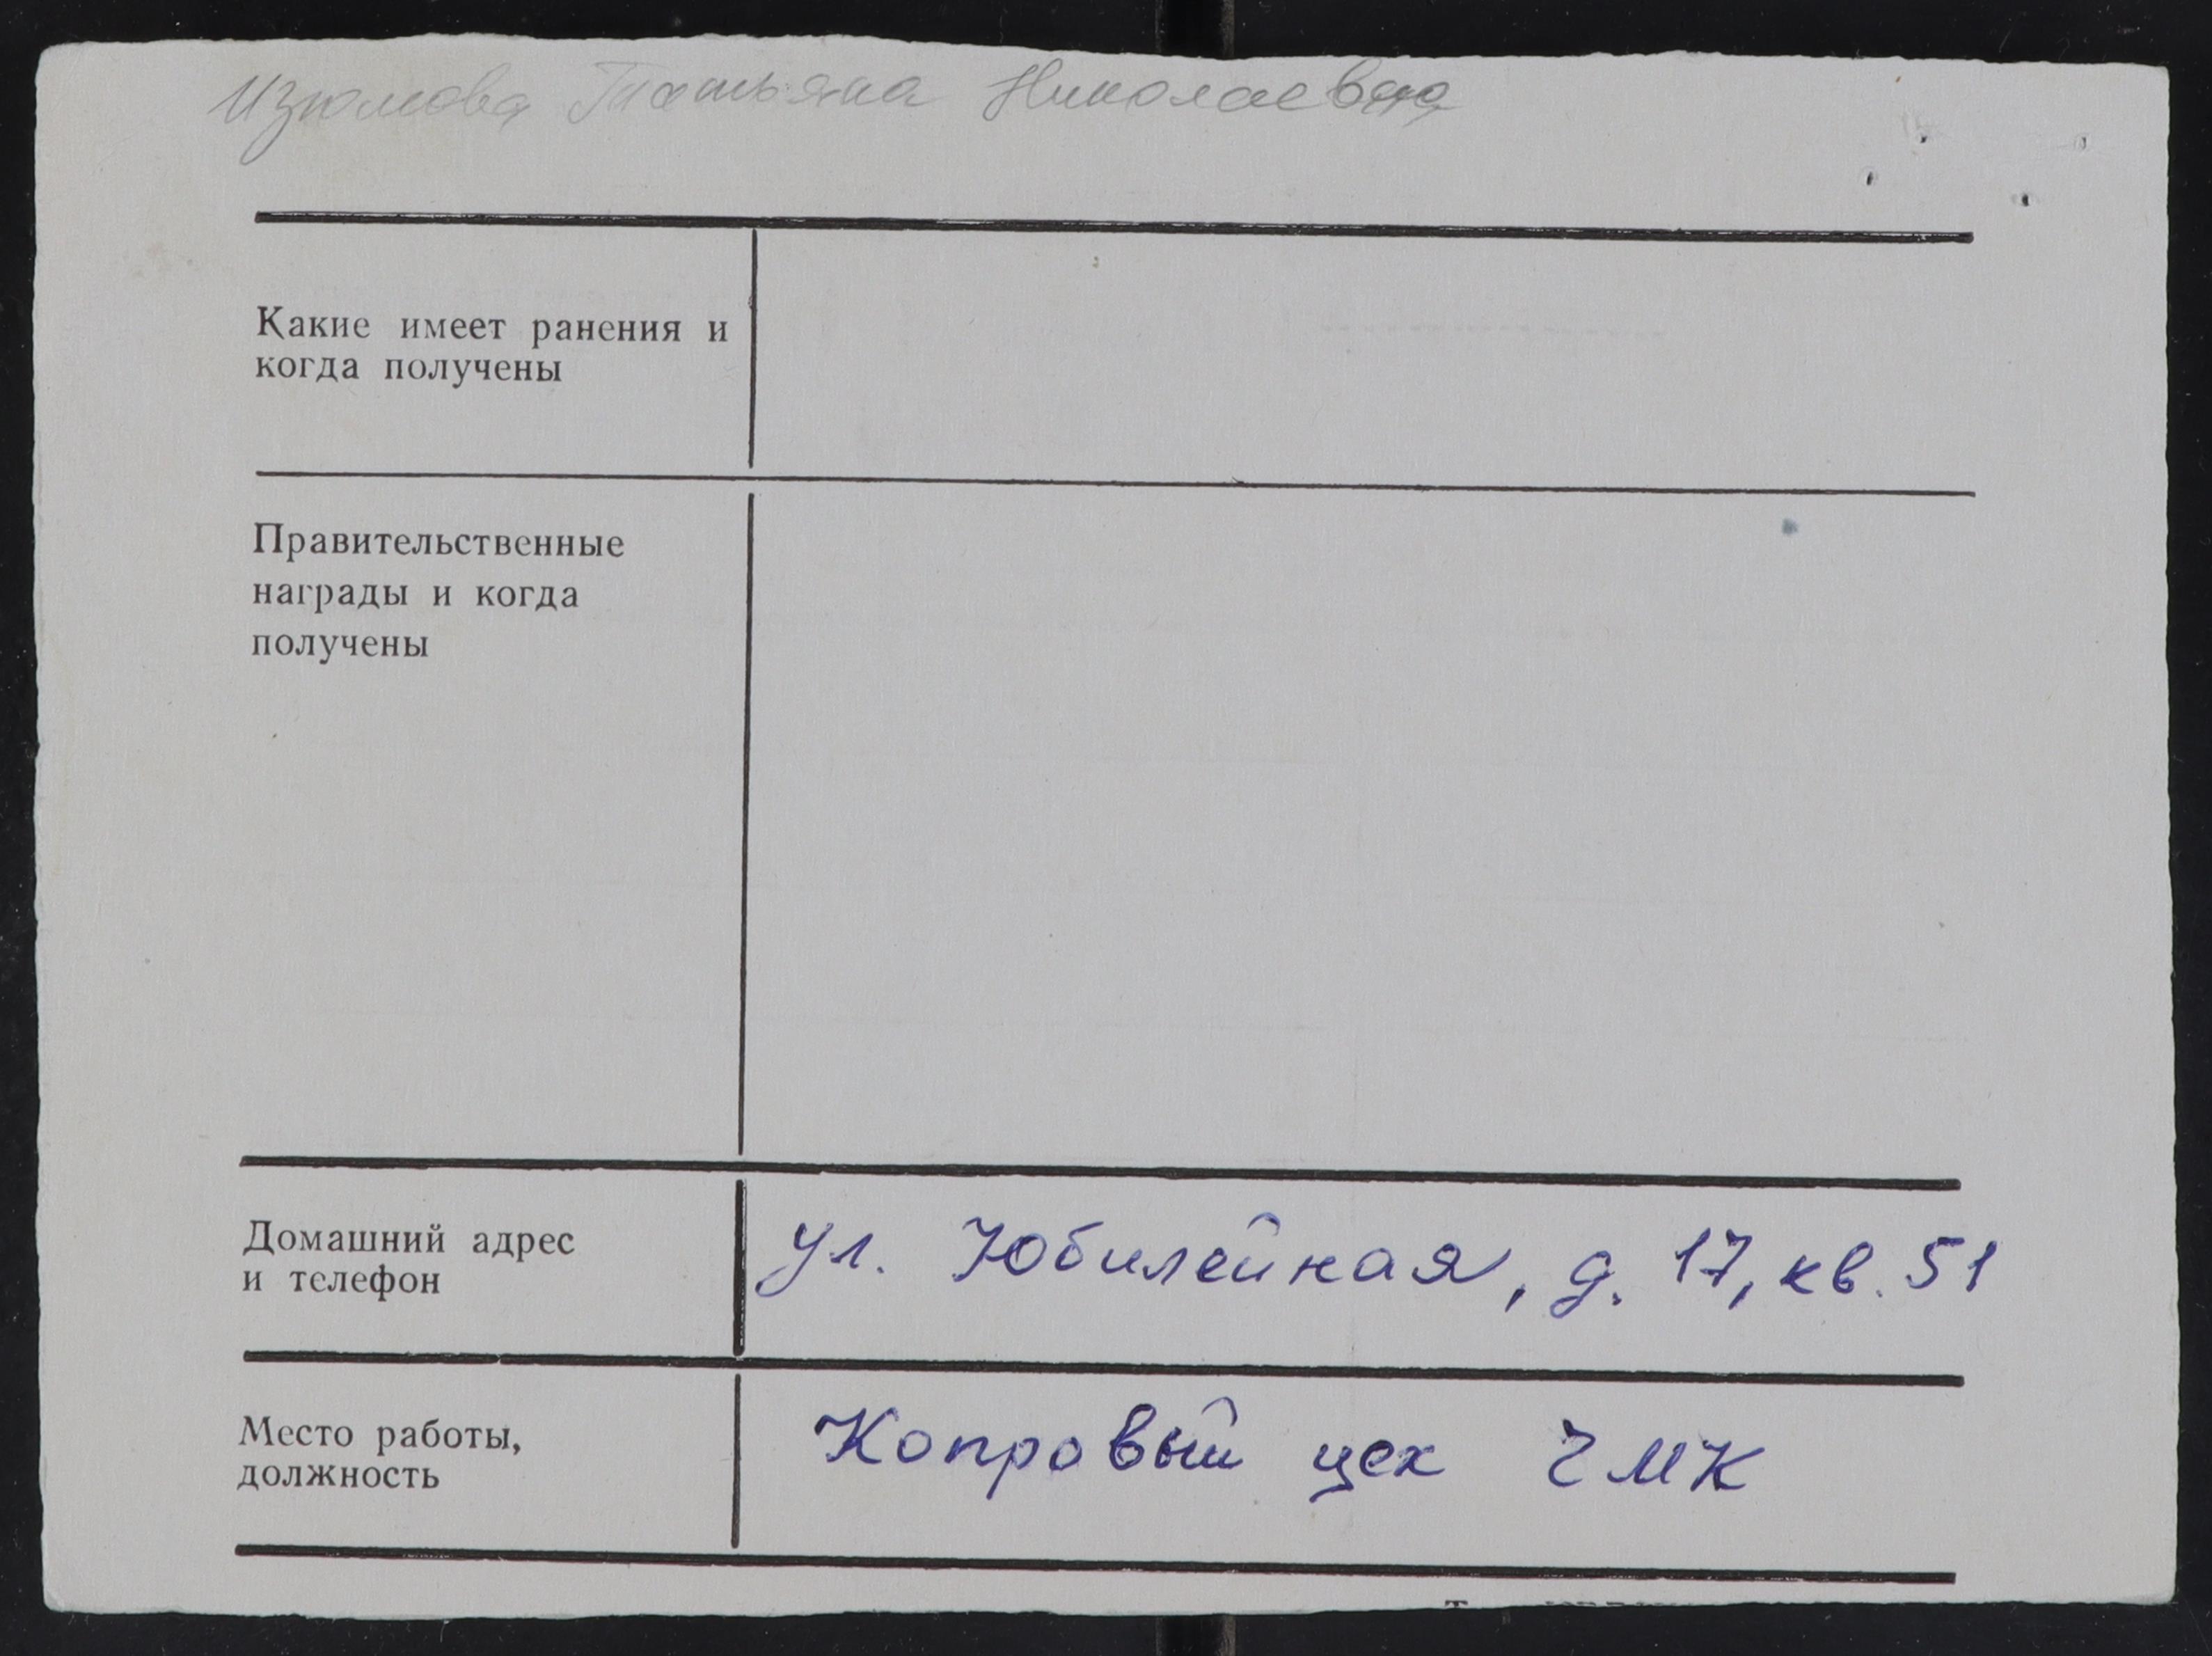 Изюмова Татьяна Николаевна
Какие имеет ранения и
когда получены
Правительственные
награды и когда
получены
Домашний адрес
и телефон
ул. Юбилейная, д. 17, кв. 51
Место работы,
должность
Копровый цех ЧМК